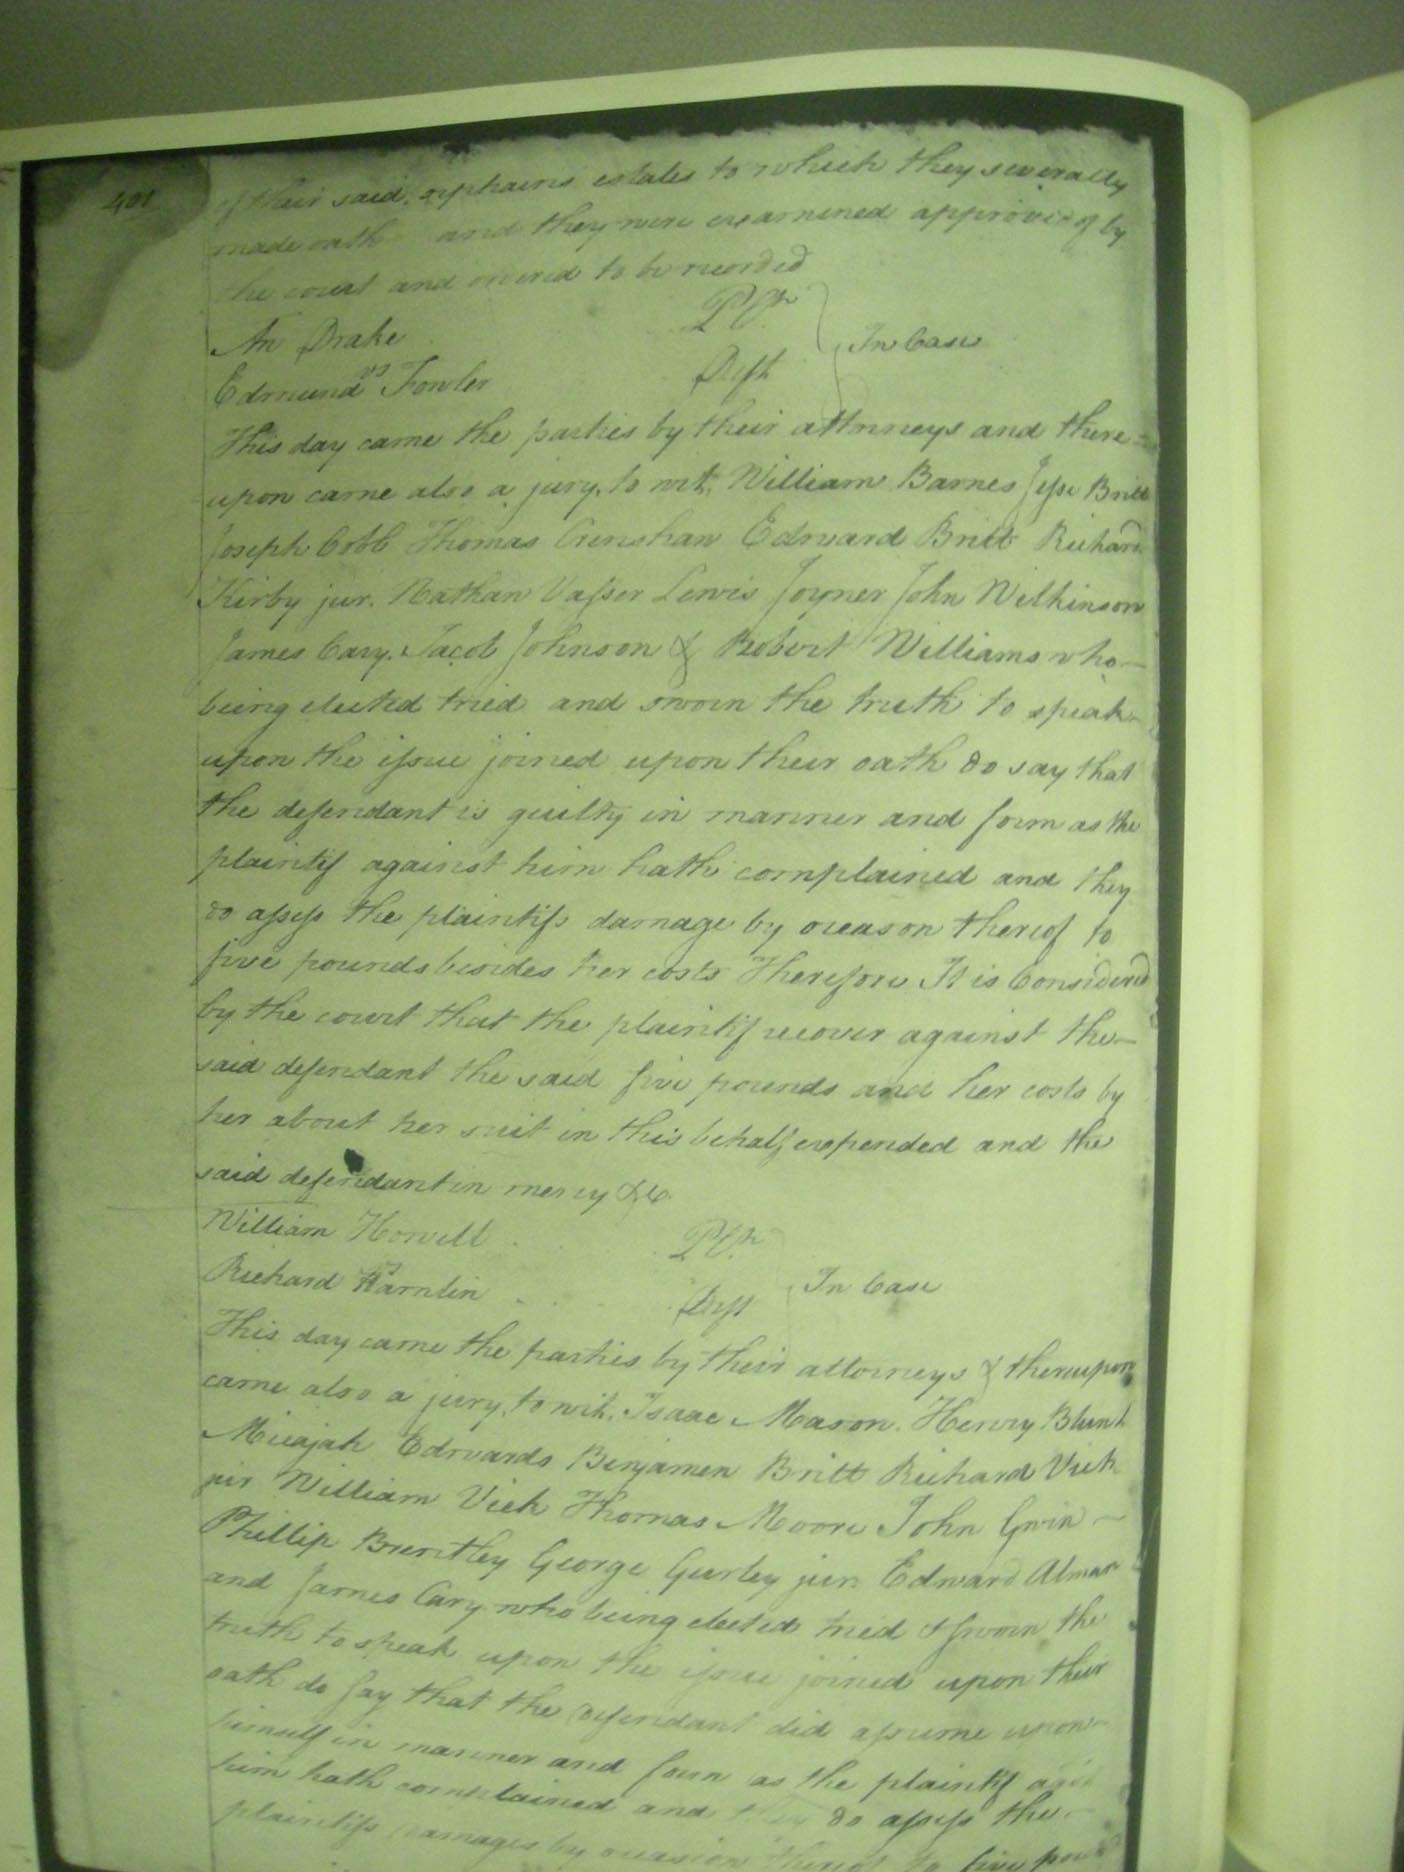 401
of their said orphans estates to which they severally
made oath and they were examined approved of by
the court and ordered to be recorded
An Drake Plt
vs In Case
Edmund Fowler Deft
This day came the parties by their attorneys and there=
upon came also a jury, to wit, William Barnes Jesse Britt
Joseph Cobb Thomas Crenshaw Edward Britt Richard
Kirby jur. Nathan Vasser Lewis Joyner John Wilkinson
James Cary. Jacob Johnson & Robert Williams who
being elected tried and sworn the truth to speak
upon the issue joined upon their oath do say that
the defendant is guilty in manner and form as the
plaintif against him hath complained and they
do assess the plaintifs damage by reason thereof to
five pounds besides her costs Therefore It is Considered
by the court that the plaintif recover against the
said defendant the said five pounds and her costs by
her about her suit in this behalf expended and the
said defendant in mercy &c.
William Howell Plt
vs In Case
Richard Hamlin Deft
This day came the parties by their attorneys & thereupon
came also a jury, to wit, Isaac Mason. Henry Blunt
Micajah Edwards Benjamen Britt Richard Vick
jur William Vick Thomas Moore John Gwin
Phillip Brentley George Gurley jun Edward Alman
and James Cary who being elected tried & sworn the
truth to speak upon the issue joined upon their
oath do say that the defendant did assume upon
himself in manner and form as the plaintif agst
him hath complained and they do assess the
plaintifs damages by occasion thereof to five